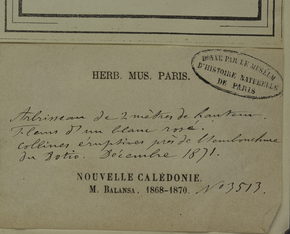 HERB. MUS. PARIS.
DONNÉ PAR LE MUSEUM
D'HISTOIRE NATURELLE
DE PARIS
Arbrisseau de 2 mètres de hauteur.
Fleurs d'un blanc rosé.
Collines éruptives près de l'embouchure
du Dotio. Décembre 1871.
NOUVELLE CALÉDONIE.
M. BALANSA, 1868-1870. No 3513.